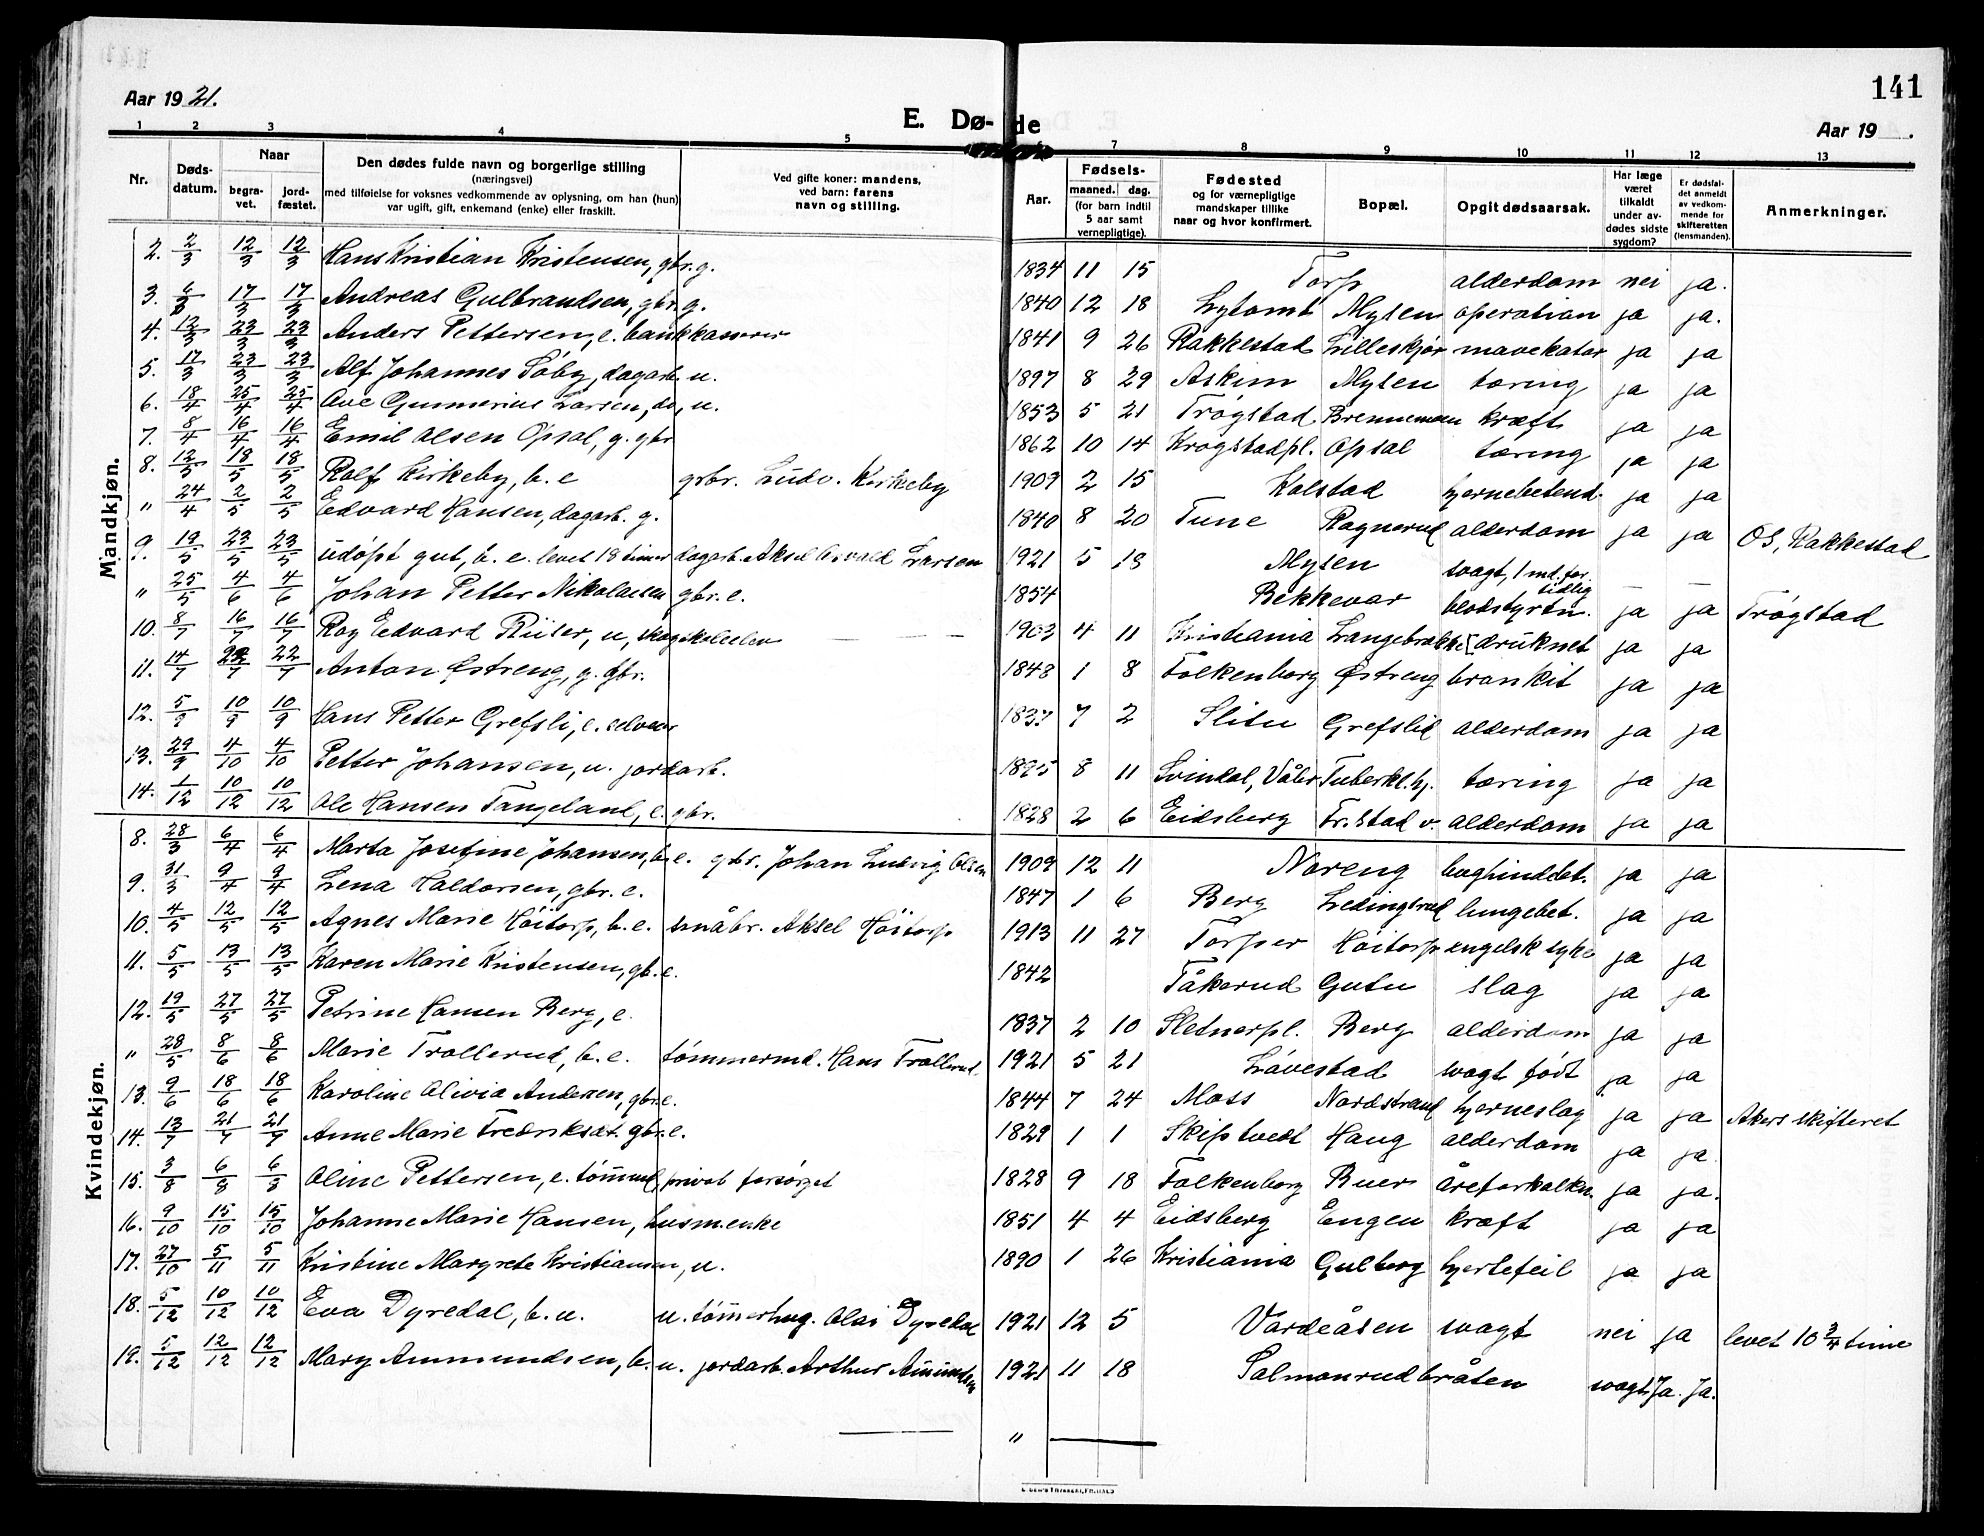 141
Aar 19 21.
E. Dø- de
Aar 19 .
1 2 3 4 5 7 8 9 10 11 12 13
Nr. Døds-datum. Naar begra-vet. jord-fæstet. Den dødes fulde navn og borgerlige stilling (næringsvei) med tilføielse for voksnes vedkommende av oplysning, om han (hun) var ugift, gift, enkemand (enke) eller fraskilt. Ved gifte koner: mandens, ved barn: farens navn og stilling. Aar. Fødsels- maaned. dag. (for barn indtil 5 aar samt vernepligtige). Fødested og for værnepligtige mandskaper tillike naar og hvor konfirmert. Bopæl. Opgit dødsaarsak. Har læge været tilkaldt under av-dødes sidste sygdom? Er dødsfal-det anmeldt av vedkom-mende for skifteretten (lensmanden). Anmerkninger.
Mandkjøn.
2. 2/3 12/3 12/3 Hans Kristian Kristensen, gbr. g. 1834 11 15 Torp alderdom nei ja.
3. 6/3 17/3 17/3 Andreas Gulbrandsen, gbr. g. 1840 12 18 Lytomt Mysen operation ja ja.
4. 12/3 23/3 23/3 Anders Pettersen, e. bankkasserer 1841 9 26 Rakkestad Lilleskjør mavekatar ja ja
5. 17/3 23/3 23/3 Alf Johannes Søby, dagarb. u. 1897 8 29 Askim Mysen tæring ja ja
6. 18/4 25/4 25/4 Ove Gunnerius Larsen, do, u. 1853 5 21 Trøgstad Brennemoen kræft ja ja
7. 8/4 16/4 16/4 Emil Olsen Opsal, g. gbr 1862 10 14 Krogstadpl. Opsal tæring ja ja
8. 12/5 18/5 18/5 Rolf Kirkeby, b. e grbr. Ludv. Kirkeby 1909 2 15 Kolstad hjernebetend. ja ja
" 24/4 2/5 2/5 Edvard Hansen, dagarb. g. 1840 8 20 Tune Ragnerud alderdom ja ja Os, Rakkestad
9. 19/5 23/5 23/5 udøpt gut, b. e. levet 18 timer dagarb. Aksel Osvald Larsen 1921 5 18 Mysen svagt, 1 md. for tidlig – –
" 25/5 4/6 4/6 Johan Petter Nikolaisen gbr. e. 1854 Bekkevar blodstyrtn. ja ja Trøgstad
10. 8/7 16/7 16/7 Roy Edvard Riiser, u, skogskoleelev 1903 4 11 Kristiania Langebrække [druknet ja ja
11. 14/7 22/7 22/7 Anton Østreng, g. gbr. 1848 1 8 Folkenborg Østreng bronkit ja ja
12. 5/9 10/9 10/9 Hans Petter Grefsli, e. selveier 1837 7 2 Slitu Grefslid alderdom ja ja
13. 29/9 4/10 4/10 Petter Johansen, u. jordarb. 1895 8 11 Svindal, Våler Tuberkl. hj. tæring ja ja
14. 1/12 10/12 10/12 Ole Hansen Tangeland, e. gbr. 1828 2 6 Eidsberg Fr.stad v. alderdom ja ja
Kvindekjøn.
8. 28/3 6/4 6/4 Marta Josefine Johansen, b. e. grbr. Johan Ludvig Olsen 1909 12 11 Noreng bughindebet. ja ja
9. 31/3 9/4 9/4 Lena Haldorsen, gbr. e. 1847 1 6 Berg Ledingsrud lungebet. ja ja
10. 4/5 12/5 12/5 Agnes Marie Høitorp, b. e. småbr. Aksel Høitorp 1913 11 27 Torper Høitorp engelsk syke ja ja
11. 5/5 13/5 13/5 Karen Marie Kristensen, gbr. e. 1842 Tåkerud Gutu slag ja ja
12. 19/5 27/5 27/5 Petrine Hansen Berg, e. 1837 2 10 Sletnerpl. Berg alderdom ja ja
" 28/5 8/6 8/6 Marie Trollerud, b. e. tømmermd. Hans Trollerud 1921 5 21 Løvestad svagt født ja ja
13. 9/6 18/6 18/6 Karoline Olivia Andersen, gbr. e. 1844 7 24 Moss Nordstrand hjerneslag ja ja Akers skifteret
14. 13/7 21/7 21/7 Anne Marie Fredriksdt. gbr. e. 1829 1 1 Skiptvedt Haug alderdom ja ja.
15. 3/8 6/8 6/8 Oline Pettersen, e. tømmerm. privat forsørget 1828 9 18 Folkenborg Buer åreforkalkn. ja ja.
16. 9/10 15/10 15/10 Johanne Marie Hansen, husm.enke 1851 4 4 Eidsberg Engen kræft ja ja
17. 27/10 5/11 5/11 Kristine Margrete Kristiansen, u. 1890 1 26 Kristiania Gulberg hjertefeil ja ja
18. 5/12 10/12 10/12 Eva Dyredal, b. u. u. tømmerhug. Olai Dyredal 1921 12 5 Vardeåsen svagt nei ja levet 10 3/4 time
19. 5/12 12/12 12/12 Mary Ammundsen, b. u. jordarb. Arthur Amundsen 1921 11 18 Salmonrudbråten svagt Ja. Ja.
"